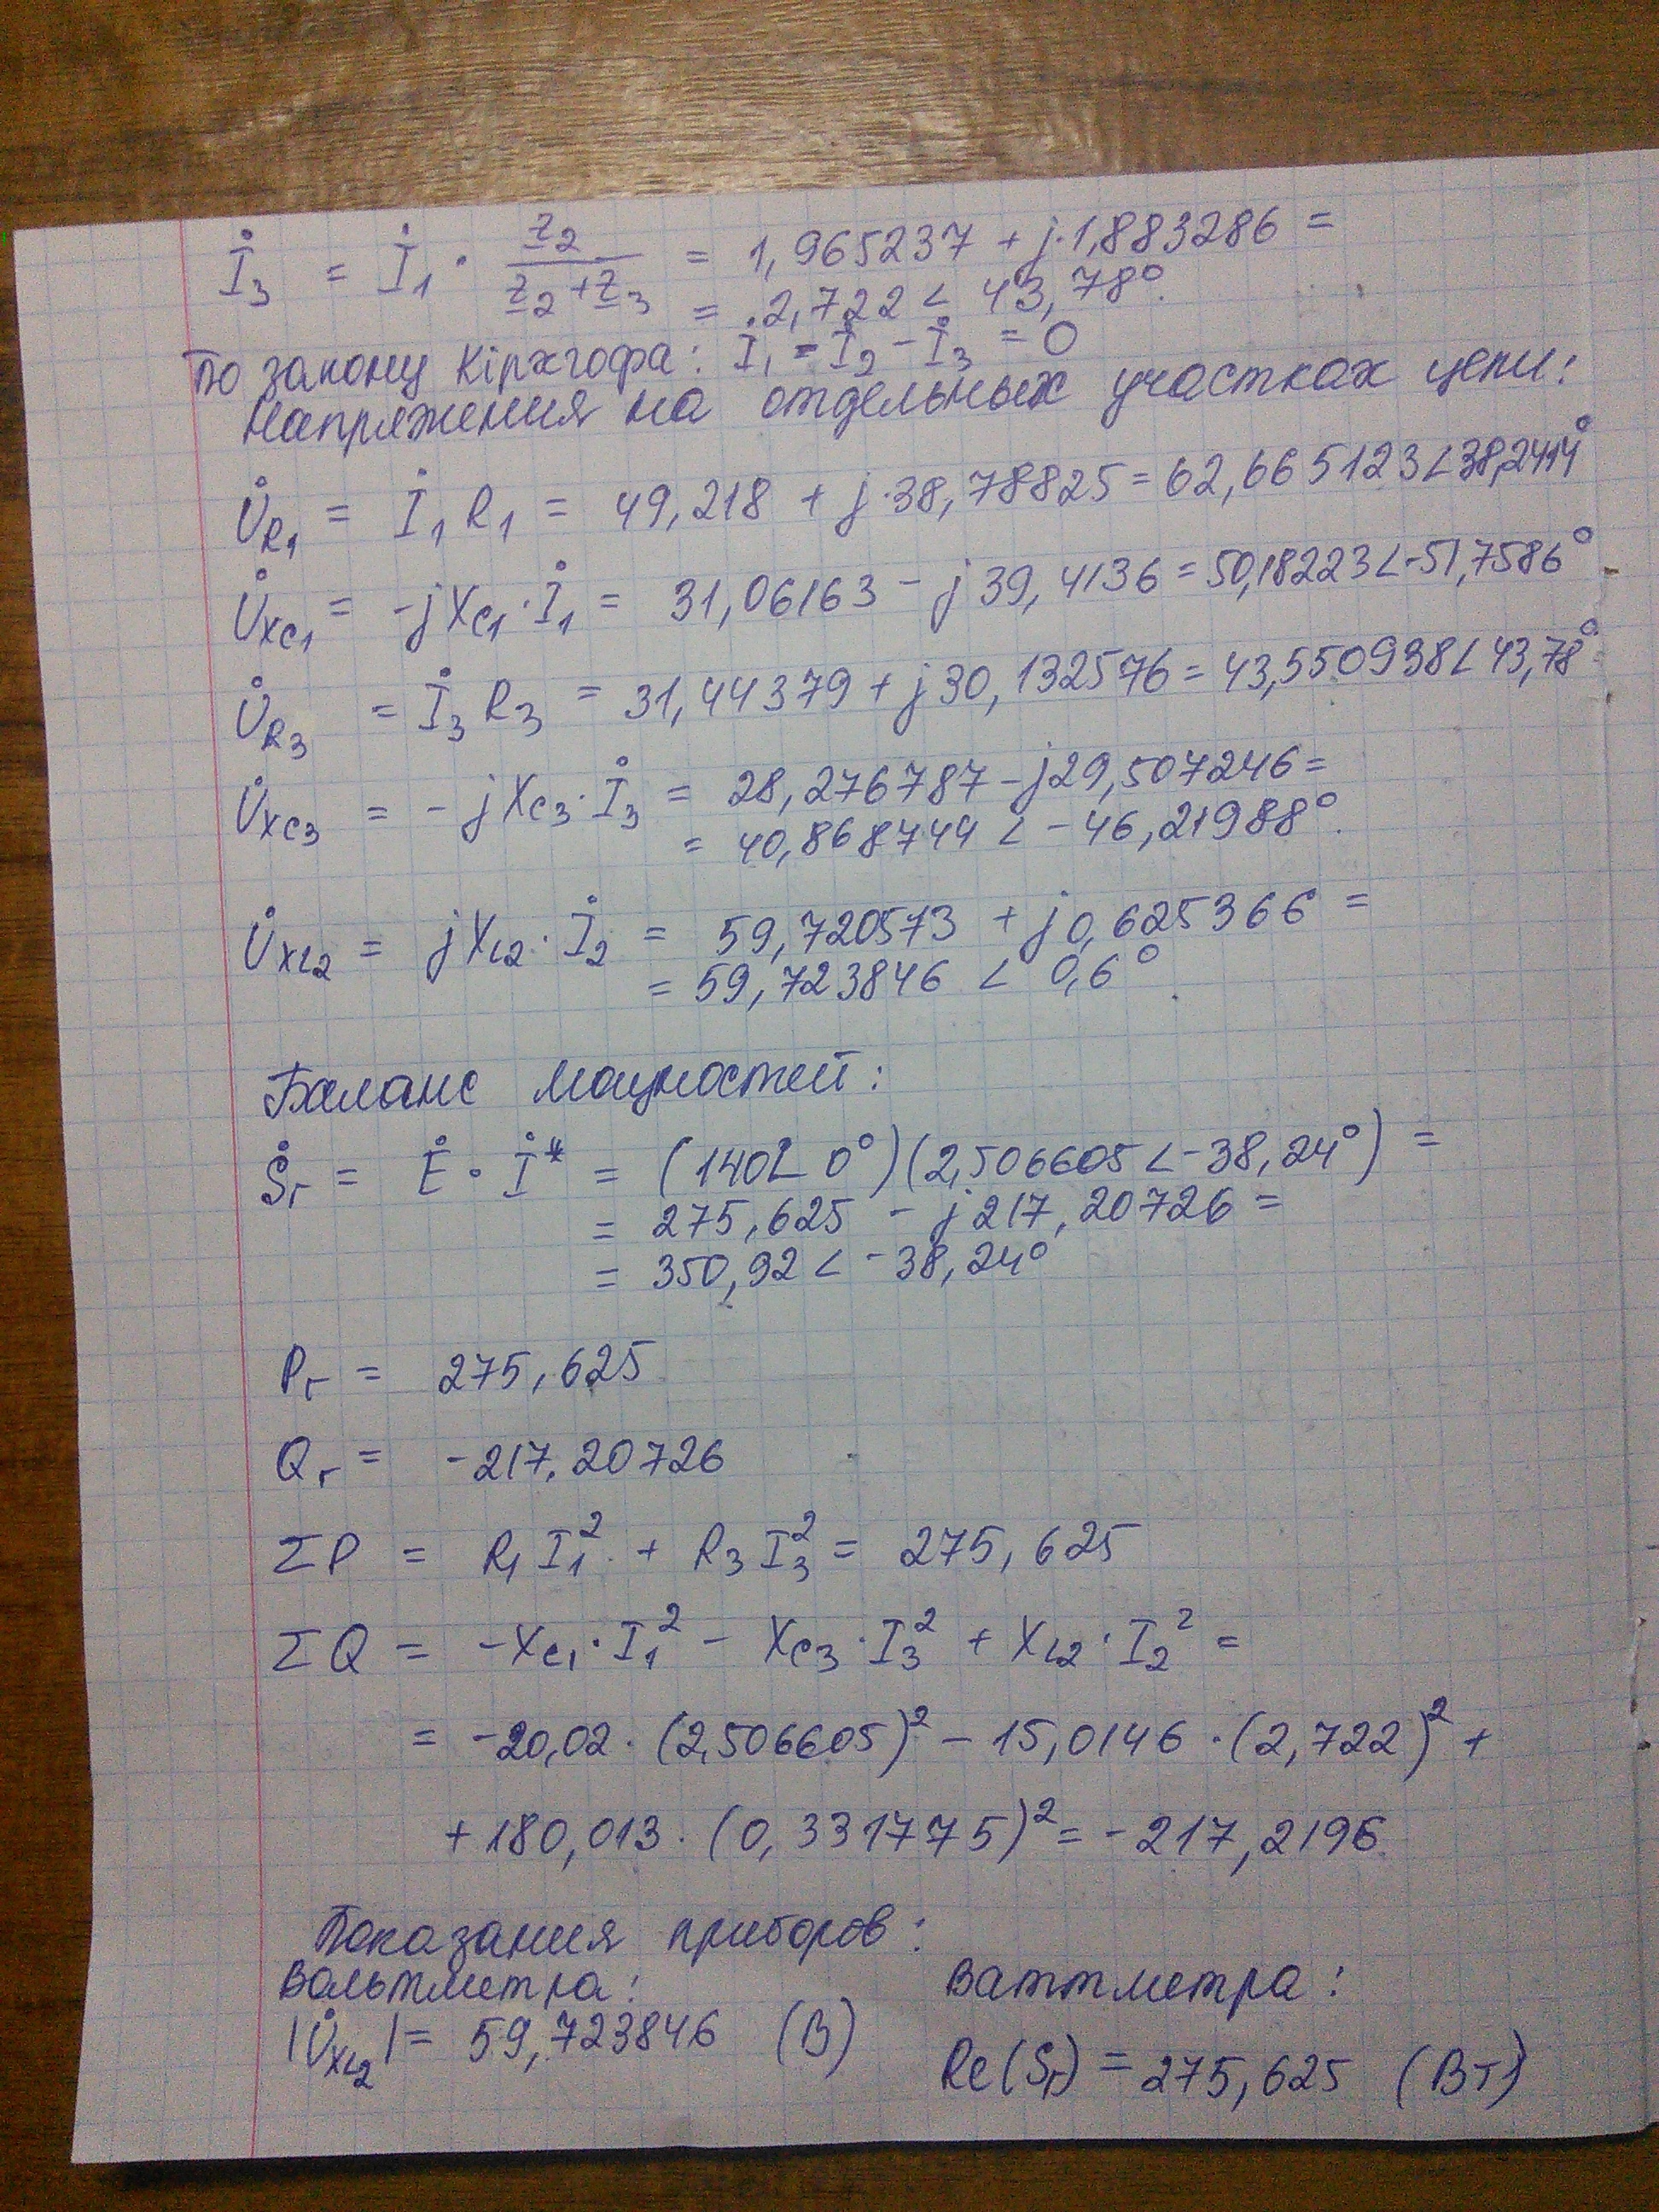 İ₃ = İ₁ · Z₂/(Z₂+Z₃) = 1,965237 + j·1,883286 =
= 2,722 ∠ 43,78°.
По закону Кірхгофа: İ₁ - İ₂ - İ₃ = 0
Напряжения на отдельных участках цепи:
U̇R₁ = İ₁R₁ = 49,218 + j·38,78825 = 62,665123∠38,2414°
U̇xc₁ = -jXc₁·İ₁ = 31,06163 - j39,4136 = 50,18223∠-51,7586°
U̇R₃ = İ₃R₃ = 31,44379 + j30,132576 = 43,550938∠43,78°
U̇xc₃ = -jXc₃·İ₃ = 28,276787 - j29,507246 =
= 40,868744 ∠ -46,21988°.
U̇xL₂ = jXL₂·İ₂ = 59,720573 + j0,625366 =
= 59,723846 ∠ 0,6°
Баланс мощностей:
Ṡг = Ė · İ* = (140∠0°)(2,506605∠-38,24°) =
= 275,625 - j217,20726 =
= 350,92∠-38,24°
Pг = 275,625
Qг = -217,20726
ΣP = R₁I₁² + R₃I₃² = 275,625
ΣQ = -Xc₁·I₁² - Xc₃·I₃² + XL₂·I₂² =
= -20,02·(2,506605)² - 15,0146·(2,722)² +
+ 180,013·(0,331775)² = -217,2196
Показания приборов:
Вольтметра: Ваттметра:
|U̇xL₂| = 59,723846 (В) Re(Sг) = 275,625 (Вт)